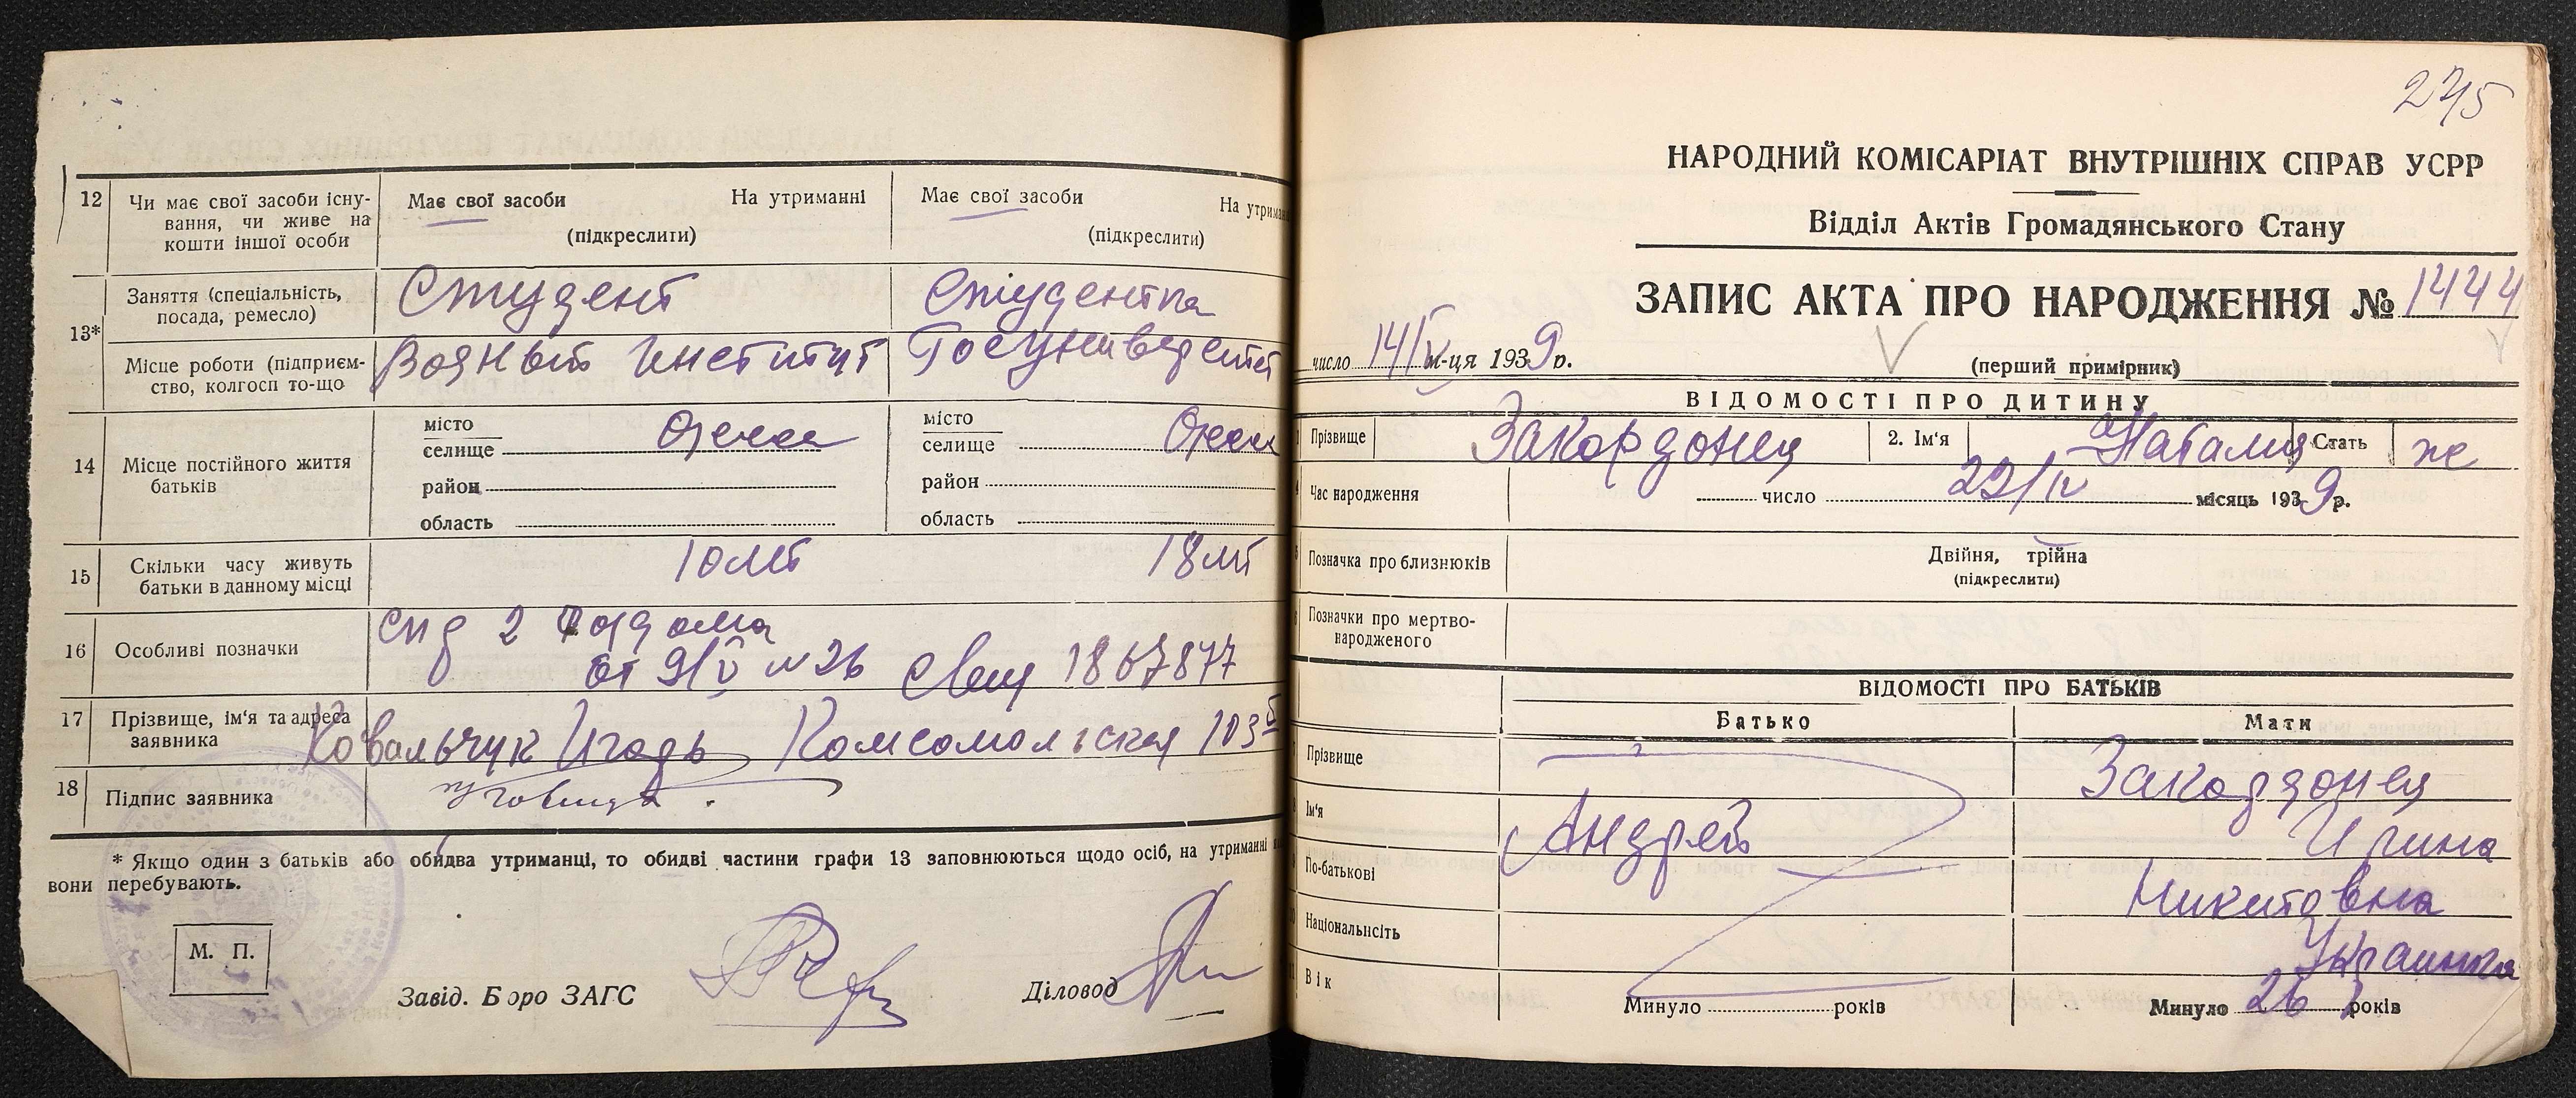 12 Чи має свої засоби існу-
вання, чи живе на
кошти іншої особи
Має свої засоби На утриманні
(підкреслити)
Має свої засоби На утриман
(підкреслити)
13* Заняття (спеціальність,
посада, ремесло)
Студент
Студентка
Місце роботи (підприєм-
ство, колгосп то-що
Водный Институт
Госуниверситет
14 Місце постійного життя
батьків
місто
селище Одесса
район
область
місто
селище Одесса
район
область
15 Скільки часу живуть
батьки в данному місці
10 лет
18 лет
16 Особливі позначки
спр 2 Роддома
от 9/V N 26 свид 1867877
17 Прізвище, ім'я та адреса
заявника
Ковальчук Игорь Комсомольская 103
18 Підпис заявника
* Якщо один з батьків або обидва утриманці, то обидві частини графи 13 заповнюються щодо осіб, на утриманні
вони перебувають.
М. П.
Завід. Бюро ЗАГС
Діловод
275
НАРОДНИЙ КОМІСАРІАТ ВНУТРІШНІХ СПРАВ УСРР
Відділ Актів Громадянського Стану
ЗАПИС АКТА ПРО НАРОДЖЕННЯ № 1444
число 14/V м-ця 1939 р.
(перший примірник)
ВІДОМОСТІ ПРО ДИТИНУ
Прізвище Закордонец 2. Ім'я Наталия Стать ж
Час народження число 29/IV місяць 1939 р.
Позначка про близнюків
Двійня, трійна
(підкреслити)
Позначки про мертво-
народженого
ВІДОМОСТІ ПРО БАТЬКІВ
Батько Мати
Прізвище Закордонец
Ім'я Андрей Ирина
По-батькові Никитовна
Національність Украинка
Вік
Минуло років Минуло 26 років